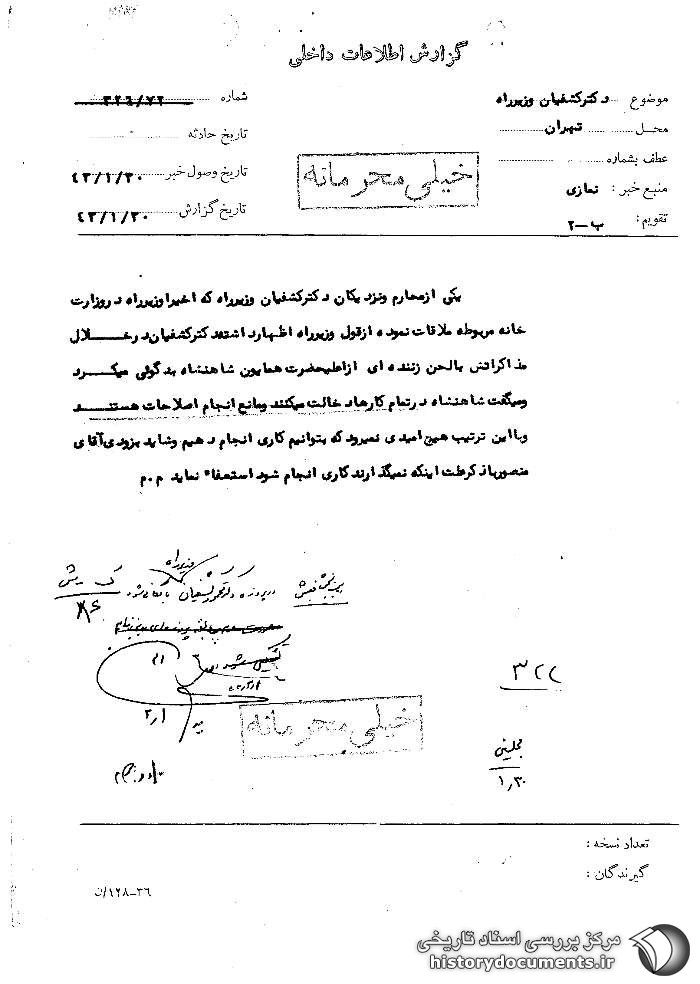 گزارش اطلاعات داخلی
موضوع دکترکشفیان وزیرراه
محل تهران
عطف بشماره
منبع خبر : نمازی
تقویم : ب-۲
شماره ۳۲۶/۷۲
تاریخ حادثه
تاریخ وصول خبر ۴۳/۱/۳۰
تاریخ گزارش ۴۳/۱/۳۰
خیلی محرمانه
یکی ازمحارم ونزدیکان دکترکشفیان وزیرراه که اخیراوزیرراه دروزارت
خانه مربوطه ملاقات نموده ازقول وزیرراه اظهارداشته دکترکشفیان درخلال
مذاکراتش بالحن زننده ای ازاعلیحضرت همایون شاهنشاه بدگوئی میکرد
ومیگفت شاهنشاه درتمام کارهادخالت میکنند ومانع انجام اصلاحات هستند
وبااین ترتیب هیچ امیدی نمیرود که بتوانیم کاری انجام دهیم وشاید بزودی آقای
منصورهم از علت اینکه نمیگذارند کاری انجام شود استعفاء نماید م.م
وزیر راه
در پرونده دکتر کشفیان بایگانی شود
خیلی محرمانه
۳۲۲
۱٫۳۰
تعداد نسخه :
گیرندگان :
۳۶-۱۲۸/ن
مرکز بررسی اسناد تاریخی
historydocuments.ir